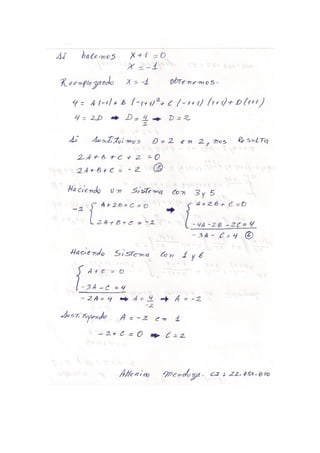 Si hacemos X+1=0
X=-1
Reemplazando X=-1 obtenemos.
4= A(-1)+B(-1+1)²+C(-1+1)(1+1)+D(1+1)
4=2D → D=4/2 → D=2
Si Sustituimos D=2 en 2, nos Resulta
2A+B+C+2=0
2A+B+C=-2 ⑤
Haciendo un Sistema con 3 y 5
-2 { A+2B+C=0 → { A+2B+C=0
2A+B+C=-2 -4A-2B-2C=4
-3A-C=4 ⑥
Haciendo Sistema con 1 y 6
{ A+C=0
-3A-C=4
-2A=4 → A=4/-2 → A=-2
Sustituyendo A=-2 en 1
-2+C=0 → C=2
Mendoza. CI: 22.